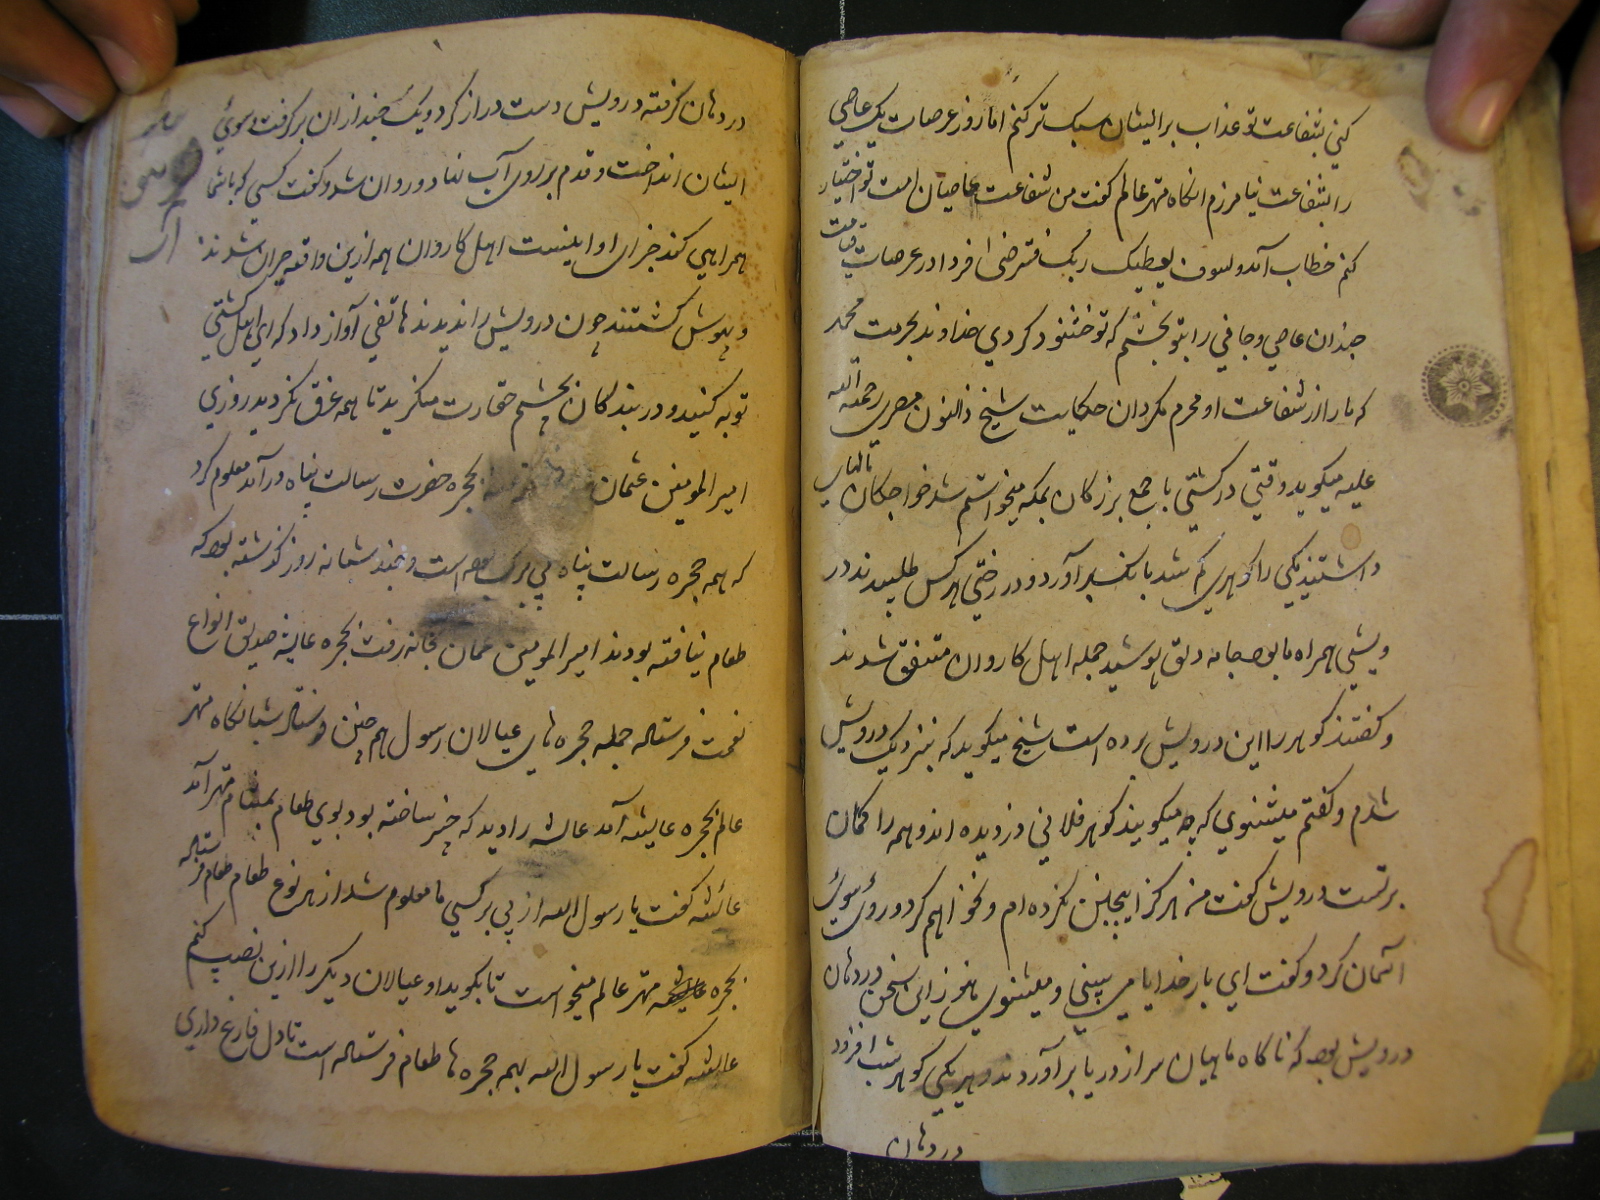 کنی بشفاعت تو عذاب بر ایشان سبک تر کنم اما روز عرصات یک عاصی
را بشفاعت نیامرزم انکاه مهتر عالم گفت من شفاعت عاصیان امت تو اختیار
کنم خطاب آمد ولسوف یعطیک ربک فترضی فردا در عرصات قیامت
چندان عاصی و جافی را بتو بخشم که تو خشنود کردی خداوند بحرمت محمد
که ما را از شفاعت او محرم مکردان حکایت شیخ ذالنون مصری رحمة الله
علیه میکوید وقتی در کشتی با جمع بزرکان بمکه میخواستم شد خواجکان
داشتند یکی را کوهری کم شد بانک بر آورد و در رختی هر کس طلبیدند در
ویشی همراه ما بود جامه دلق پوشید جمله اهل کاروان متفق شدند
و کفتند کوهر را این درویش برده است شیخ میکوید که بنزدیک درویش
شدم و کفتم میشنوی که چه میکویند کوهر فلانی دزدیده اند و همه را کمان
برتست درویش کفت من هرکز اینچنین نکرده ام و نخواهم کرد و روی سوی
آسمان کرد و کفت ای بار خدایا می بینی و میشنوی هنوز این سخن در دهان
درویش بود که ناکاه ماهیان سر از دریا بر آوردند و هر یکی کوهر شب افروز
در دهان
در دهان کرفته درویش دست دراز کرد و یک چند از ان بر کرفت سوی
ایشان انداخت و قدم بر روی آب نهاد و روان شد و کفت کسی که با شما
همراهی کند جزای او اینست اهل کاروان همه ازین واقعه حیران شدند
و بیهوش کشتند چون درویش را ندیدند هاتفی آواز داد که ای اهل کشتی
توبه کنید و در بندکان بچشم حقارت منکرید تا همه غرق نکردید روزی
امیر المومنین عثمان بحجره حضرت رسالت پناه در آمد معلوم کرد
که همه حجره رسالت پناه بی برک است و چند شبانه روز کذشته بود که
طعام نیافته بودند امیر المومنین عثمان بخانه رفت بحجره عایشه صدیق انواع
نعمت فرستاد جمله حجره های عیالان رسول هم چنین فرستاد شبانکاه مهتر
عالم بحجره عایشه آمد عایشه را دید که چیز ساخته بود بوی طعام بمشام مهتر آمد
عائشه کفت یا رسول الله از بی برکی ما معلوم شد از هر نوع طعام طعام فرستاد
بحجره عایشه مهتر عالم میخواست تا بکوید او عیالان دیکر را ازین نصیب کنم
عایشه کفت یا رسول الله بهمه حجره ها طعام فرستاده است تا دل فارغ داری